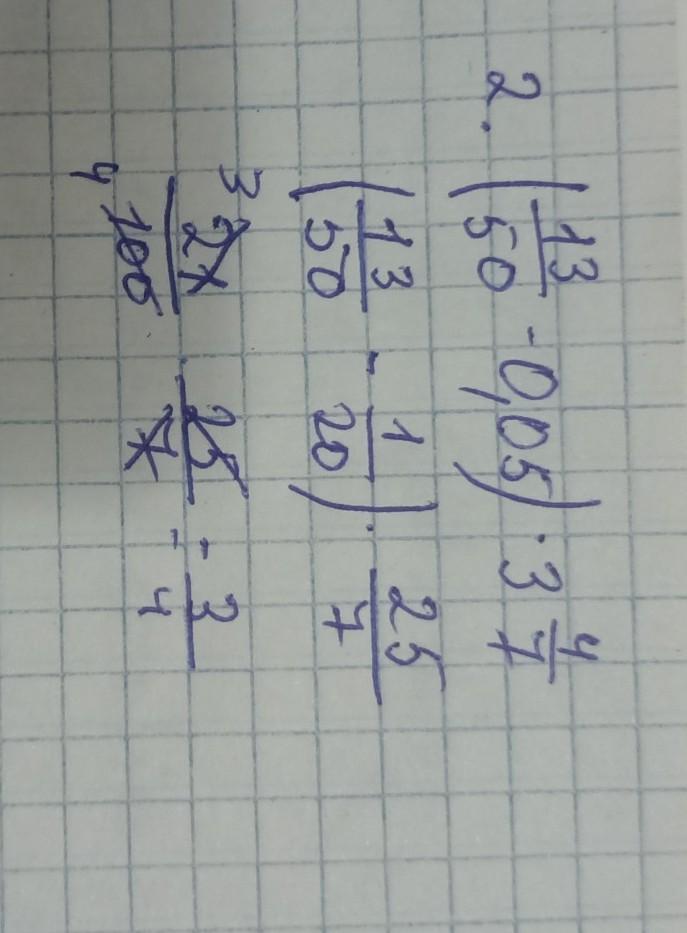 2. (13/50 - 0,05) · 3 4/7
(13/50 - 1/20) · 25/7
21/100 · 25/7 = 3/4
3
4